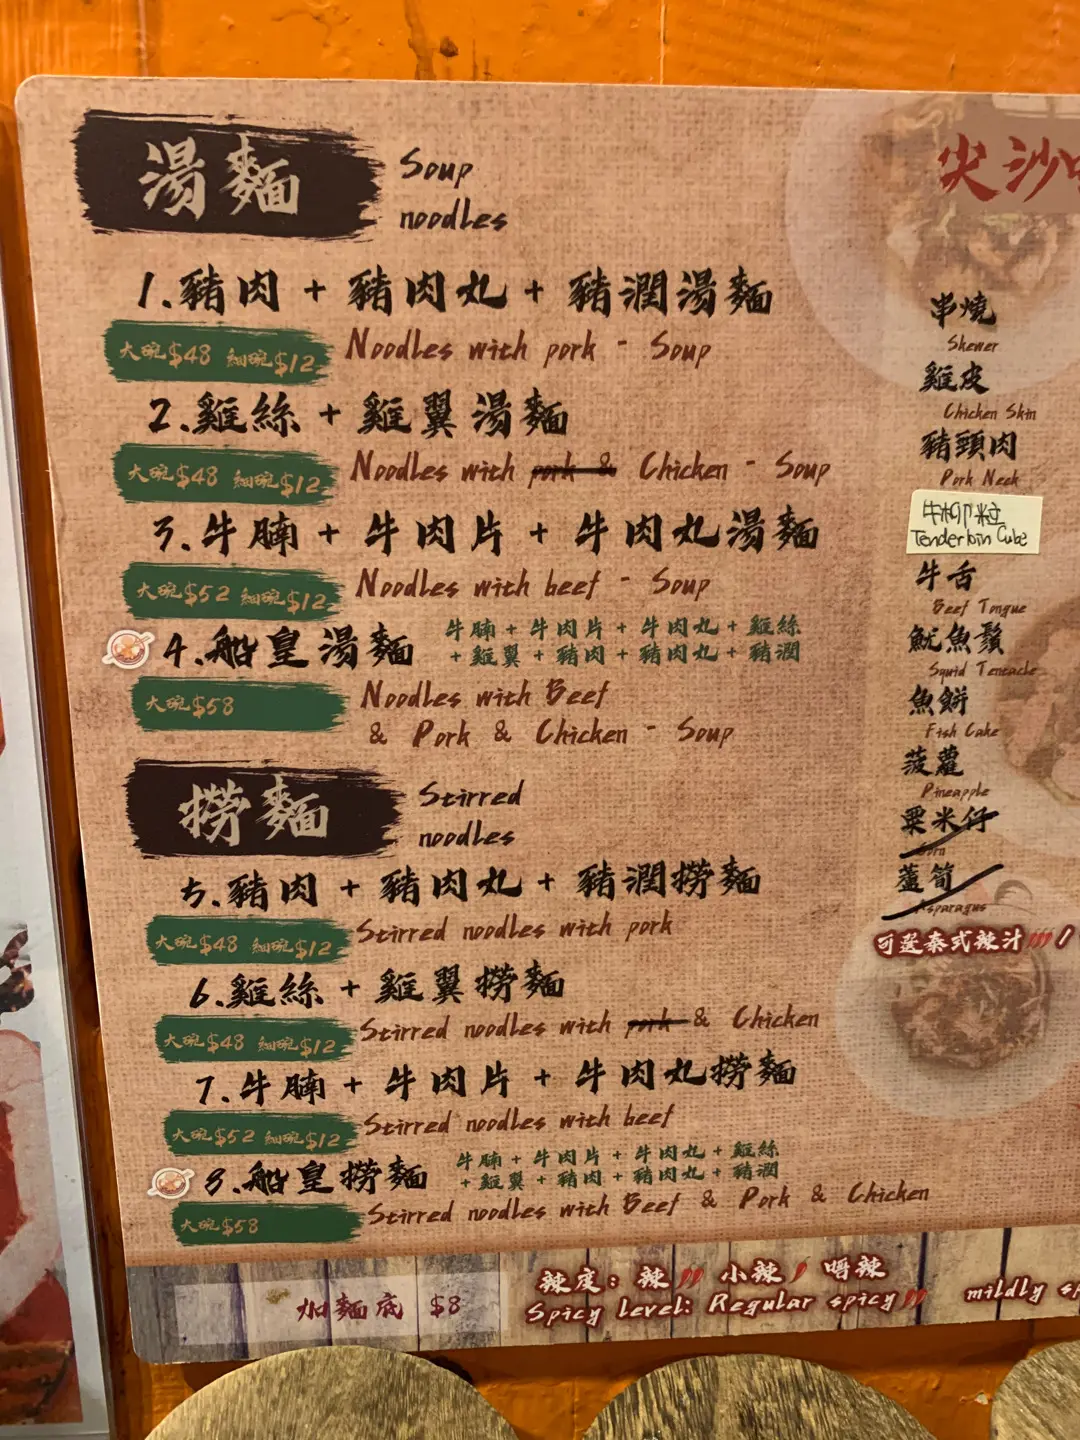 湯麵
Soup
noodles
1.豬肉 + 豬肉丸 + 豬潤湯麵
大碗$48 細碗$12
Noodles with pork - Soup
2.雞絲 + 雞翼湯麵
大碗$48 細碗$12
Noodles with pork & Chicken - Soup
3.牛腩 + 牛肉片 + 牛肉丸湯麵
大碗$52 細碗$12
Noodles with beef - Soup
4.船皇湯麵
牛腩 + 牛肉片 + 牛肉丸 + 雞絲
+ 雞翼 + 豬肉 + 豬肉丸 + 豬潤
大碗$58
Noodles with Beef
& Pork & Chicken - Soup
撈麵
Stirred
noodles
5.豬肉 + 豬肉丸 + 豬潤撈麵
大碗$48 細碗$12
Stirred noodles with pork
6.雞絲 + 雞翼撈麵
大碗$48 細碗$12
Stirred noodles with pork & Chicken
7.牛腩 + 牛肉片 + 牛肉丸撈麵
大碗$52 細碗$12
Stirred noodles with beef
8.船皇撈麵
牛腩 + 牛肉片 + 牛肉丸 + 雞絲
+ 雞翼 + 豬肉 + 豬肉丸 + 豬潤
大碗$58
Stirred noodles with Beef & Pork & Chicken
加麵底 $8
辣度: 辣 小辣 唔辣
Spicy Level: Regular spicy mildly
尖沙
串燒
Skewer
雞皮
Chicken Skin
豬頸肉
Pork Neck
牛柳粒
Tenderloin Cube
牛舌
Beef Tongue
魷魚鬚
Squid Tentacle
魚餅
Fish Cake
菠蘿
Pineapple
粟米仔
Corn
蘆筍
Asparagus
可選泰式辣汁 /